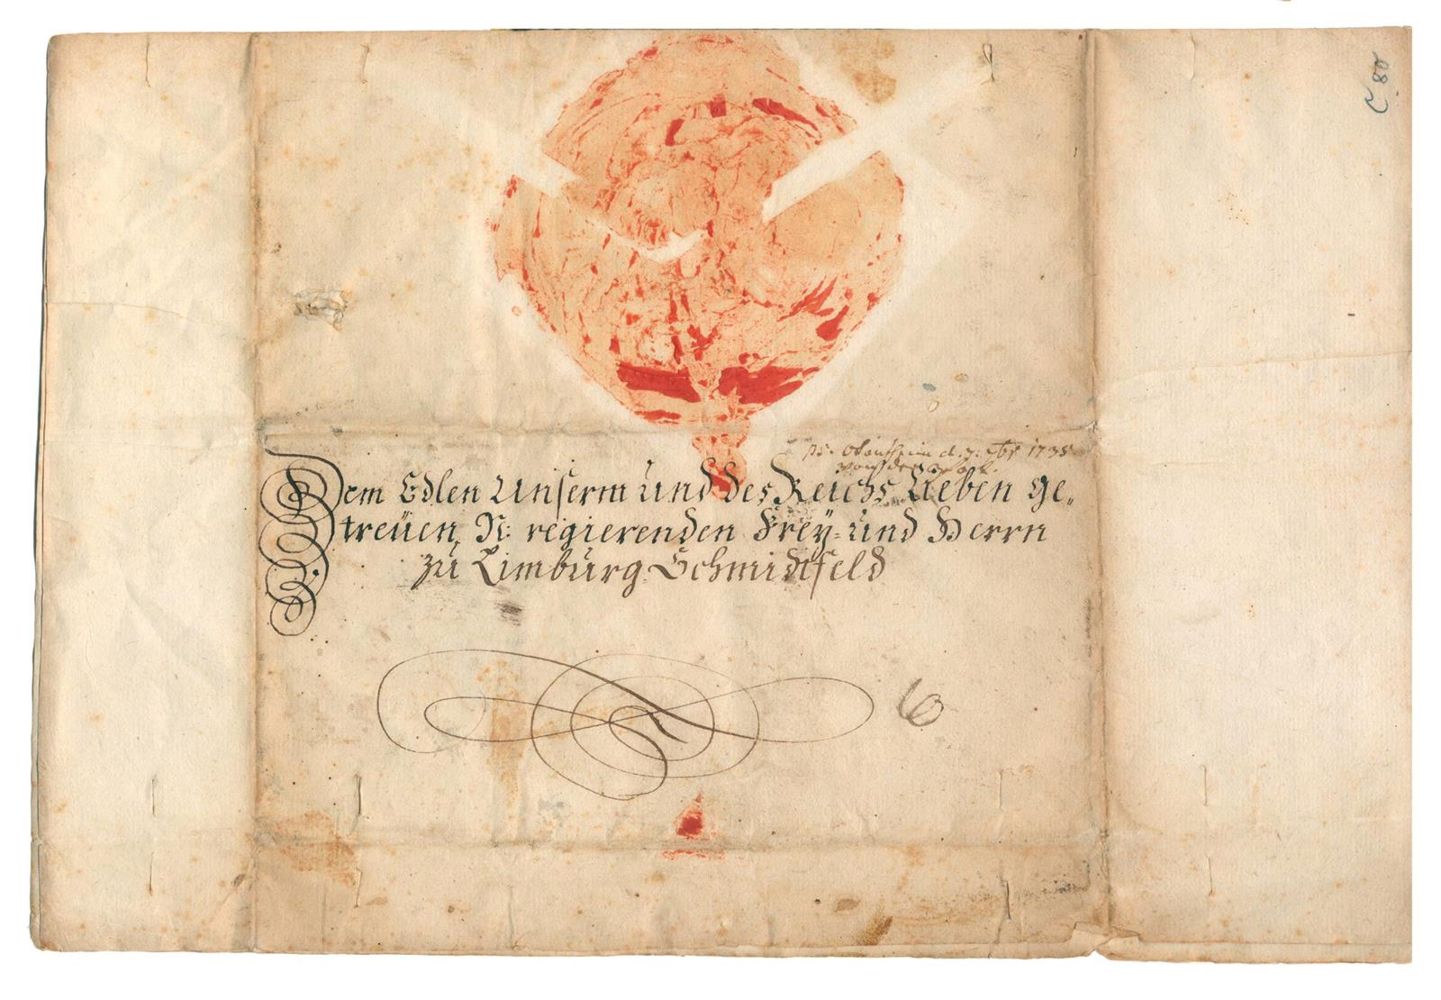 C. 80
ps. Obontheim d. 7. 1735
Dem Edlen Unserm und des Reichs Lieben Ge„
treüen, N: regierenden Frey- und Herrn
zu Limburg-Schmidtfeld
6